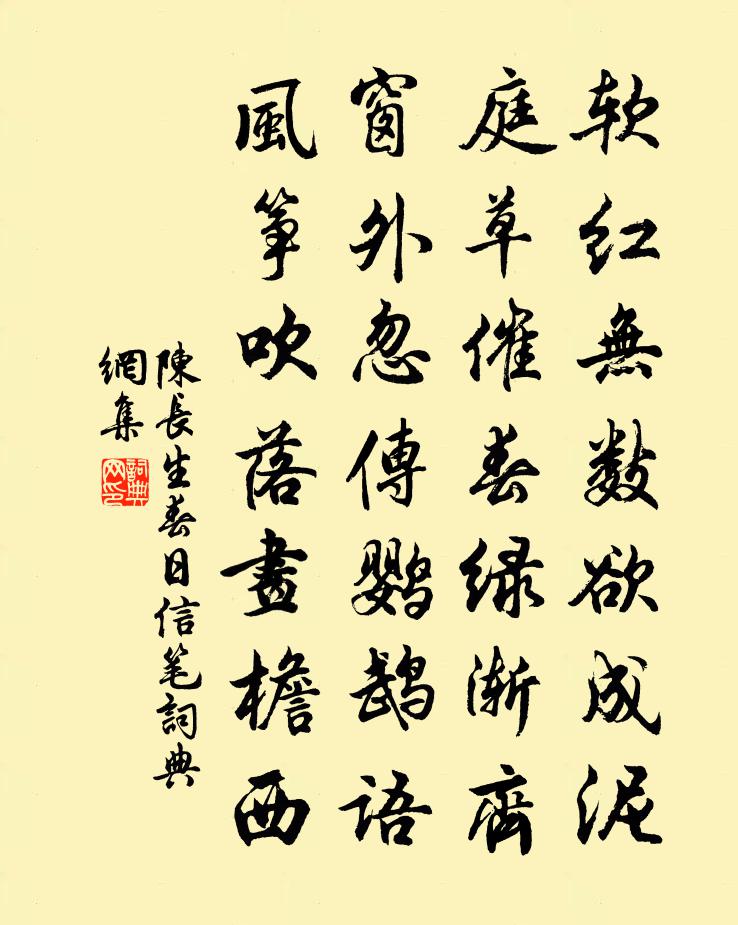 软红無数欲成泥
庭草催春绿渐齊
窗外忽傳鹦鹉语
風筝吹落畫檐西
陳長生春日信笔詞典
網集
詞典
网印